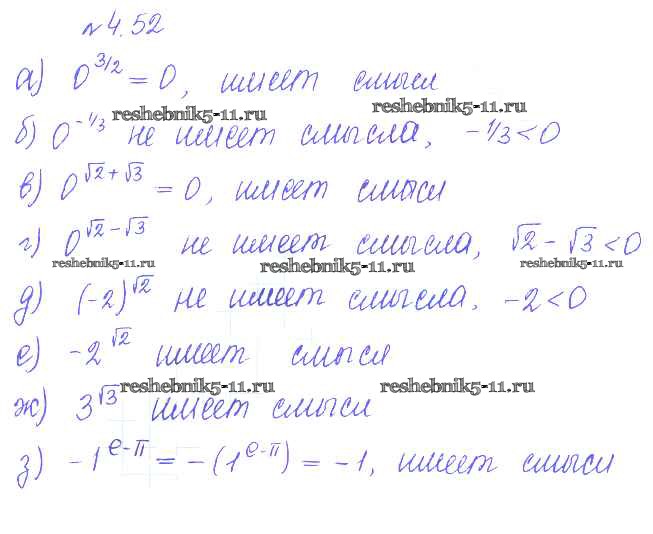 № 4.52
а) 0^{3/2} = 0, имеет смысл
reshebnik5-11.ru reshebnik5-11.ru
б) 0^{-1/3} не имеет смысла, -1/3 < 0
в) 0^{√2+√3} = 0, имеет смысл
г) 0^{√2-√3} не имеет смысла, √2 - √3 < 0
reshebnik5-11.ru reshebnik5-11.ru reshebnik5-11.ru
д) (-2)^{√2} не имеет смысла. -2 < 0
е) -2^{√2} имеет смысл
reshebnik5-11.ru reshebnik5-11.ru
ж) 3^{√3} имеет смысл
з) -1^{e-π} = -(1^{e-π}) = -1, имеет смысл